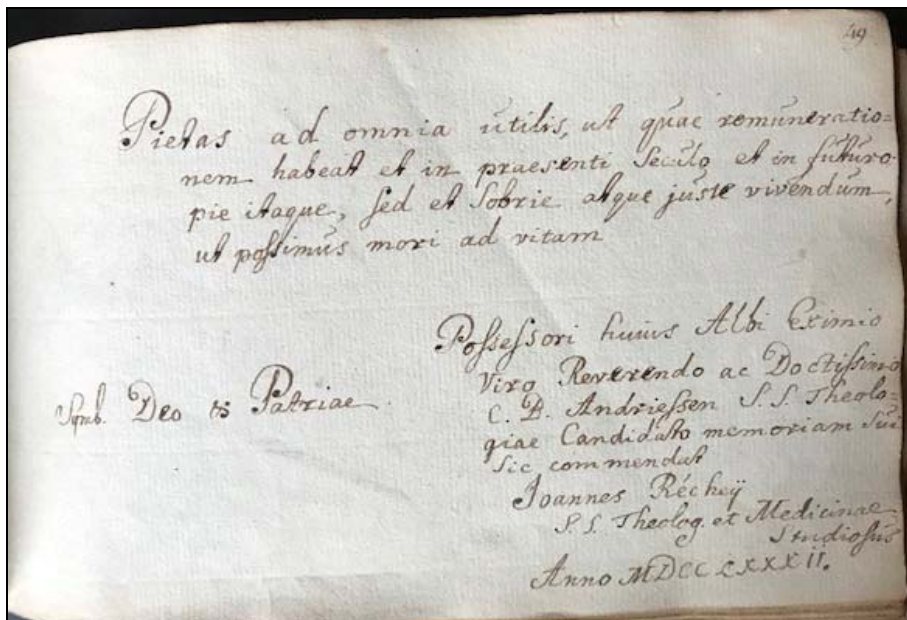 49
Pietas ad omnia utilis, ut quae remuneratio=
nem habeat et in praesenti Seculo et in futuro
pie itaque, sed et Sobrie atque juste vivendum,
ut possimus mori ad vitam
Possessori huius Albi Eximio
Viro Reverendo ac Doctissimo
C. B. Andriessen S. S. Theolo=
giae Candidato memoriam Sui
Sic commendat
Joannes Réchey
S. S. Theolog. et Medicinae
Studiosus
Anno MDCCLXXXII.
Symb. Deo & Patriae